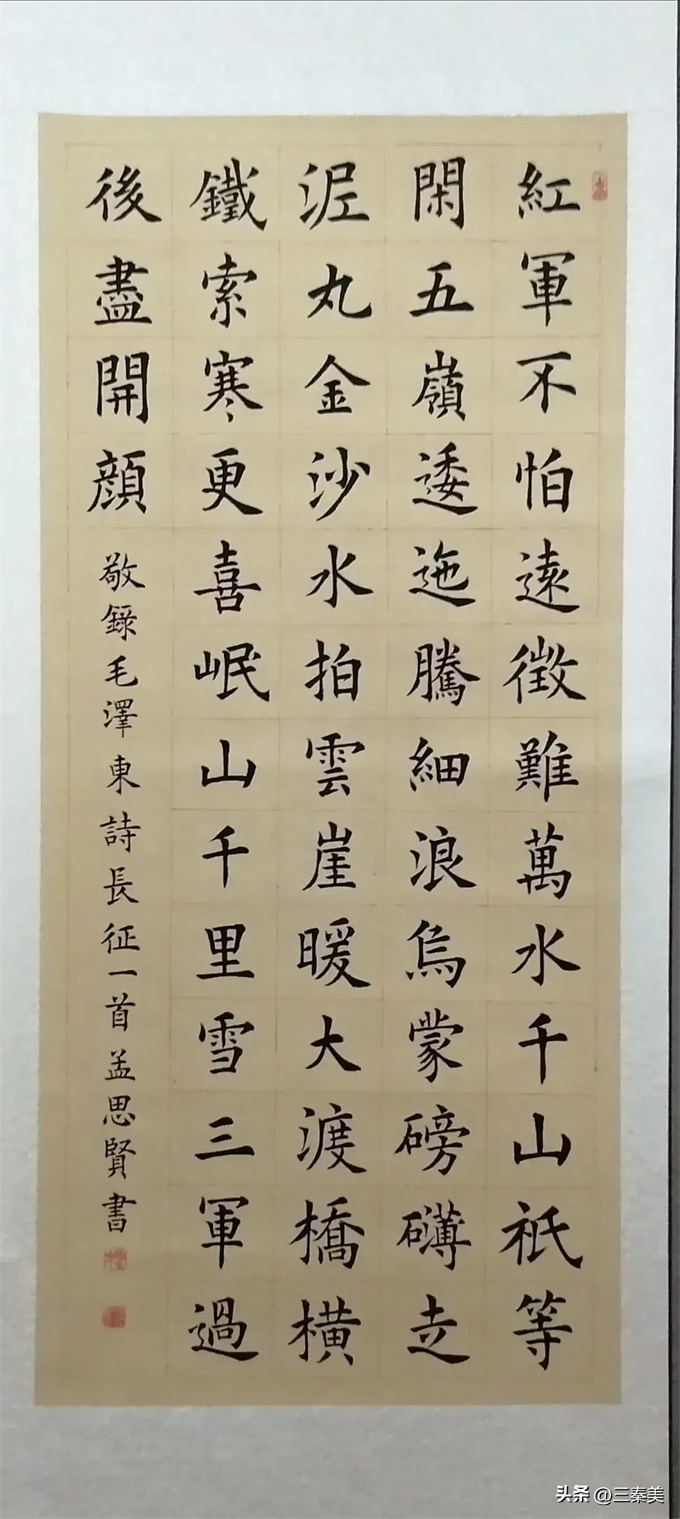 紅軍不怕遠徵難萬水千山祇等
閑五嶺逶迤騰細浪烏蒙磅礴走
泥丸金沙水拍雲崖暖大渡橋橫
鐵索寒更喜岷山千里雪三軍過
後盡開顏
敬錄毛澤東詩長征一首孟思賢書
头条 @三秦美